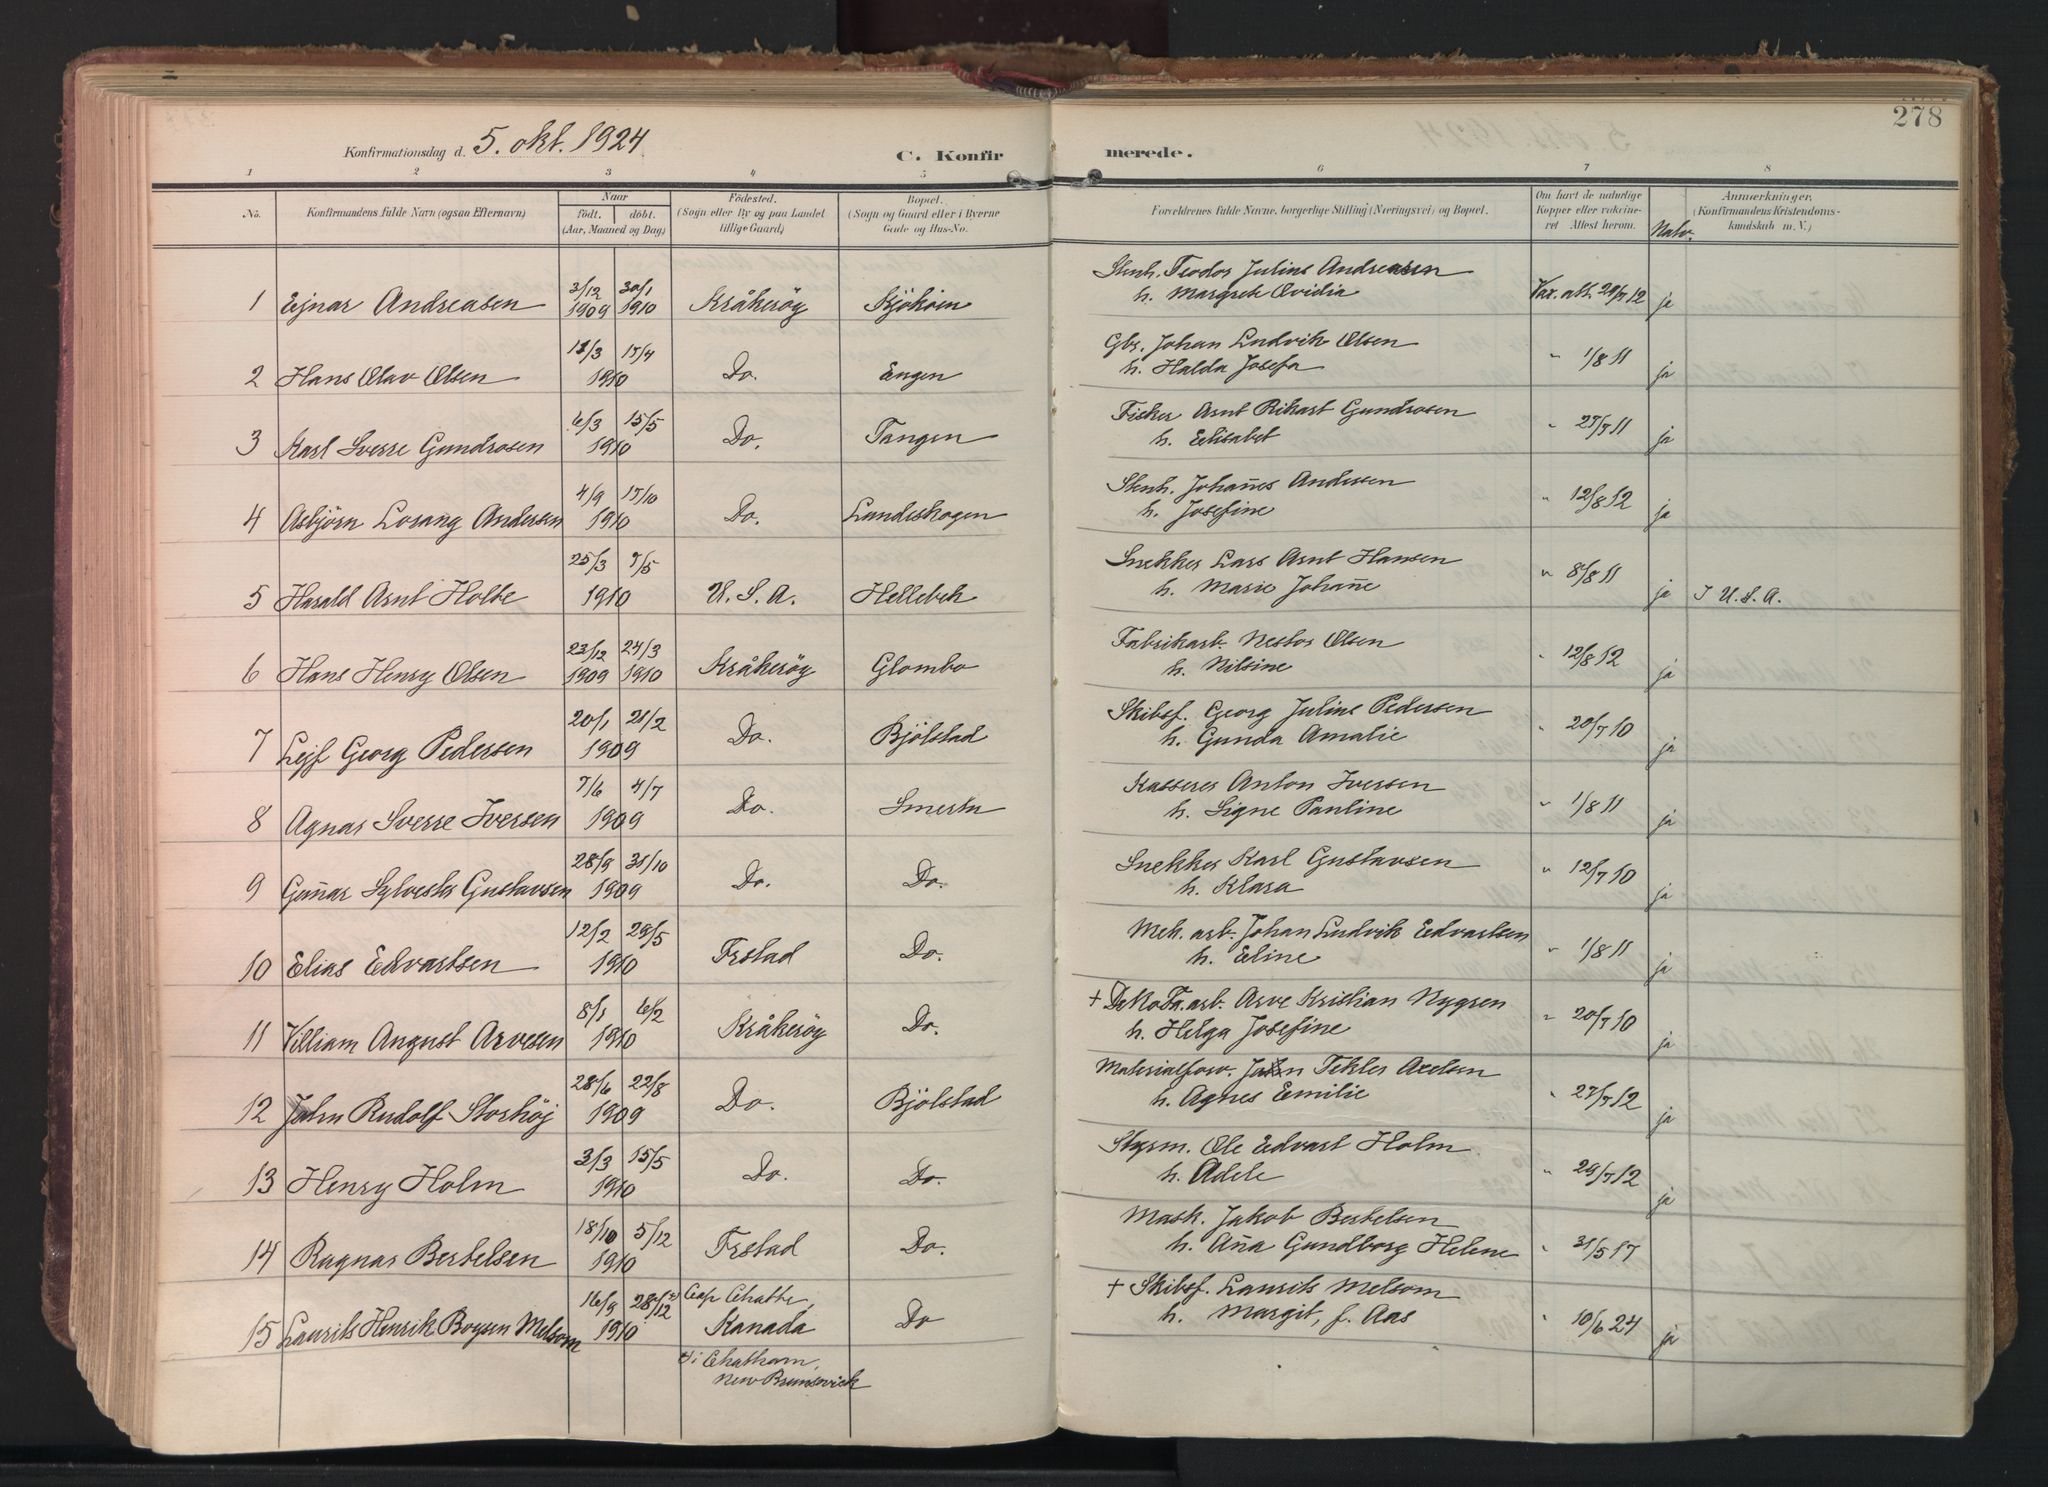 278
Konfirmationsdag d. 5. okt. 1924
C. Konfir merede.
1 2 3 4 5 6 7 8
No. Konfirmandens fulde Navn (ogsaa Efternavn)
Naar
født. døbt.
(Aar, Maaned og Dag)
Fødested.
(Sogn eller By og paa Landet tillige Gaard)
Bopæl.
(Sogn og Gaard eller i Byerne Gade og Hus-No.
Forældrenes fulde Navne, borgerlige Stilling (Næringsvei) og Bopæl.
Om havt de naturlige Kopper eller vakcineret Attest herom.
Natv.
Anmærkninger.
(Konfirmandens Kristendomskundskab m. V.)
3/12 30/1 Stenh. Teodor Julius Andreasen
1 Ejnar Andreasen 1909 1910 Kråkeröy h. Margrete Ovidia Vax. att. 29/7 12 ja
3/3 15/4 Gbr. Johan Ludvik Olsen
2 Hans Olav Olsen 1910 Do. Engen h. Halda Josefa " 1/8 11 ja
6/3 15/5 Fisker Arnt Rikart Gundrosen
3 Karl Sverre Gundrosen 1910 Do. Tangen h. Elisabet " 27/7 11 ja
4/9 15/10 Stenh. Johañes Andersen
4 Asbjörn Losang Andersen 1910 Do. Lundeskogen h. Josefine " 12/8 12 ja
25/3 7/5 Snekker Lars Arnt Hansen
5 Harald Arnt Holte 1910 U. S. A. Hellebek h. Marie Johañe " 8/8 11 ja I U. S. A.
23/12 24/3 Fabrikarb. Nestor Olsen
6 Hans Henry Olsen 1909 1910 Kråkeröy Glombo h. Nilsine " 12/8 12 ja
20/1 21/2 Skibsf. Georg Julius Pedersen
7 Lejf Georg Pedersen 1909 Do. Bjölstad h. Gunda Amalie " 20/7 10 ja
7/6 4/7 Kasserer Anton Iversen
8 Agnar Sverre Iversen 1909 Do. Smertu h. Signe Pauline " 1/8 11 ja
28/9 31/10 Snekker Karl Gustavsen
9 Guñar Sylvester Gustavsen 1909 Do. Do. h. Klara " 12/7 10 ja
12/2 29/5 Mek. arb. Johan Ludvik Edvartsen
10 Elias Edvartsen 1910 Frstad Do. h. Eline " 1/8 11 ja
8/1 6/2 + arb. Arve Kristian Nygren
11 Villiam August Arvesen 1910 Kråkeröy Do. h. Helga Josefine " 20/7 10 ja
28/6 22/8 Materialforv. Tekler Axelsen
12 John Rudolf Storhöj 1909 Do. Bjölstad h. Agnes Emilie " 27/7 12 ja
3/3 15/5 Styrm. Ole Edvart Holm
13 Henry Holm 1910 Do. Do. h. Adele " 29/7 12 ja
18/10 5/12 Mask. Jakob Bertelsen
14 Ragnar Bertelsen 1910 Frstad Do. h. Aña Gundborg Helene " 31/5 17 ja
16/9 28/12 x) Cap Chatte, + Skibsf. Laurits Melsom
15 Laurits Henrik Boysen Melsom 1910 Kanada Do h. Margit, f. Aas " 10/6 24 ja
x) i Chatham,
New Brunsevick